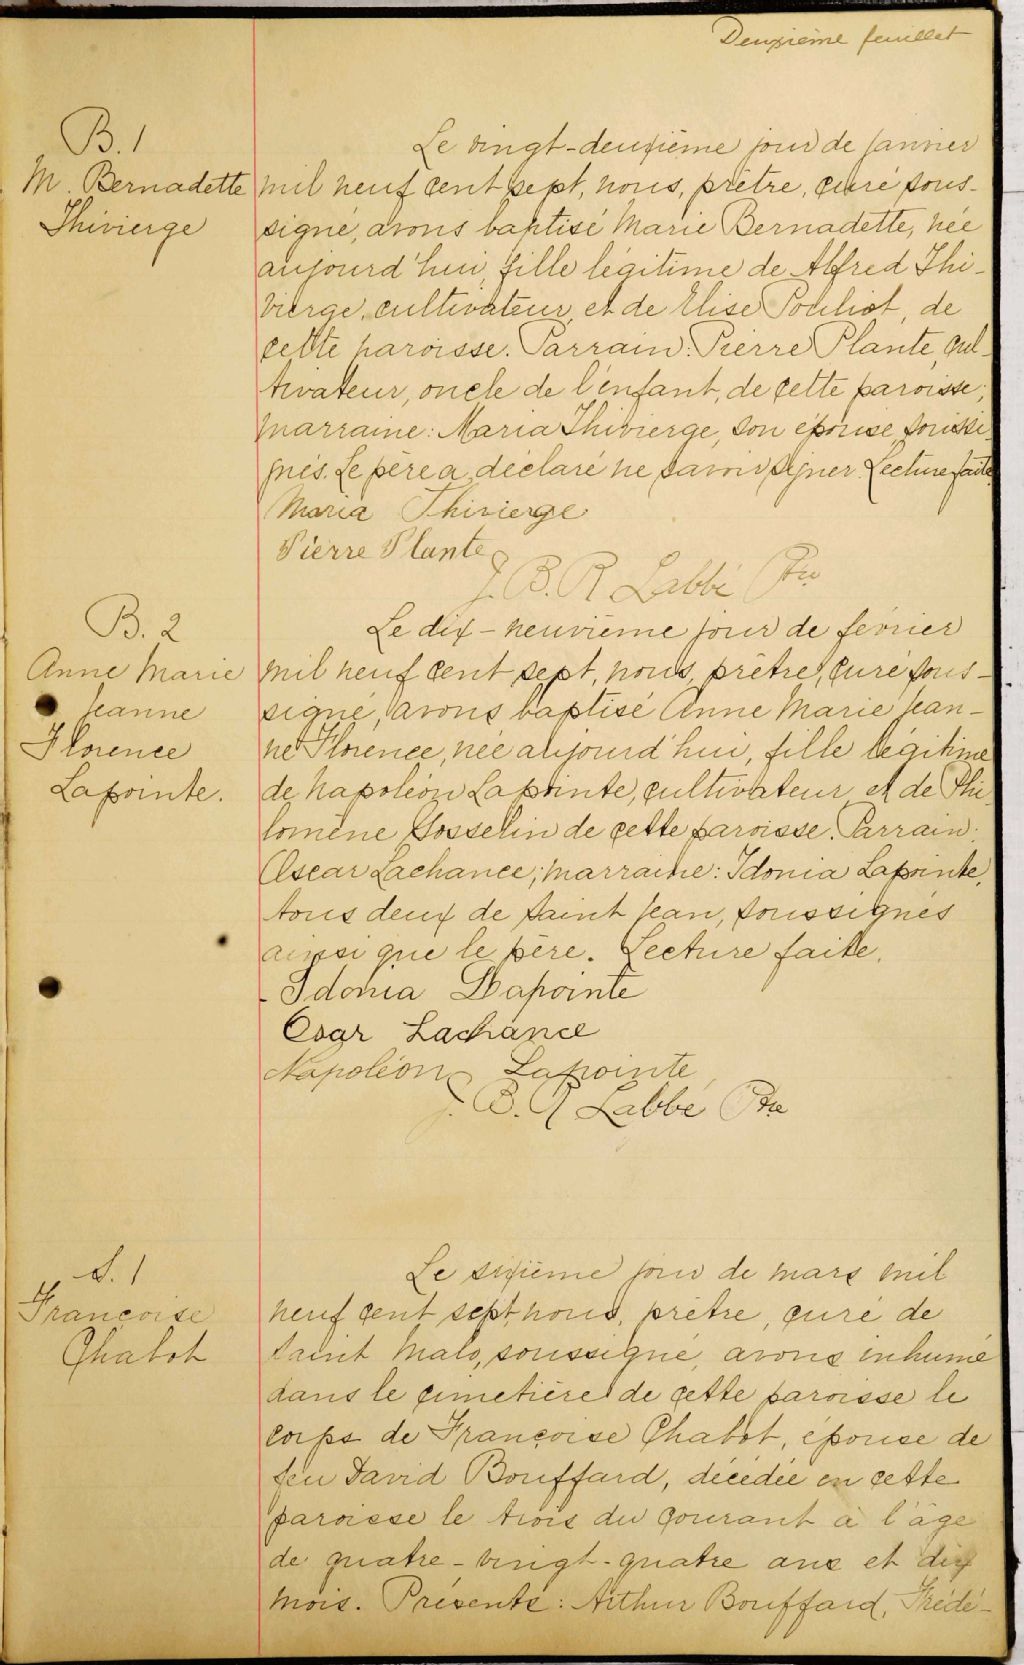 Deuxième feuillet
B. 1
M. Bernadette
Thivierge
Le vingt-deuxième jour de janvier
mil neuf cent sept, nous, prêtre, curé sous-
signé, avons baptisé Marie Bernadette, née
aujourd'hui, fille légitime de Alfred Thi-
vierge, cultivateur, et de Elise Pouliot, de
cette paroisse. Parrain: Pierre Plante, cul-
tivateur, oncle de l'enfant, de cette paroisse;
marraine: Maria Thivierge, son épouse, soussi-
gnés. Le père a déclaré ne savoir signer. Lecture faite.
Maria Thivierge
Pierre Plante
J. B. R. Labbé Ptre
B. 2
Anne Marie
Jeanne
Florence
Lapointe.
Le dix-neuvième jour de février
mil neuf cent sept, nous, prêtre, curé sous-
signé, avons baptisé Anne Marie Jean-
ne Florence, née aujourd'hui, fille légitime
de Napoléon Lapointe, cultivateur, et de Phi-
lomène Gosselin de cette paroisse. Parrain:
Oscar Lachance; marraine: Idonia Lapointe,
tous deux de Saint Jean, soussignés
ainsi que le père. Lecture faite.
Idonia Lapointe
Osar Lachance
Napoléon Lapointe
J. B. R Labbé Ptre
S. 1
Françoise
Chabot
Le sixième jour de mars mil
neuf cent sept, nous, prêtre, curé de
Saint Malo, soussigné, avons inhumé
dans le cimetière de cette paroisse le
corps de Françoise Chabot, épouse de
feu David Bouffard, décédée en cette
paroisse le trois du courant à l'âge
de quatre-vingt-quatre ans et dix
mois. Présents: Arthur Bouffard, Frédé-